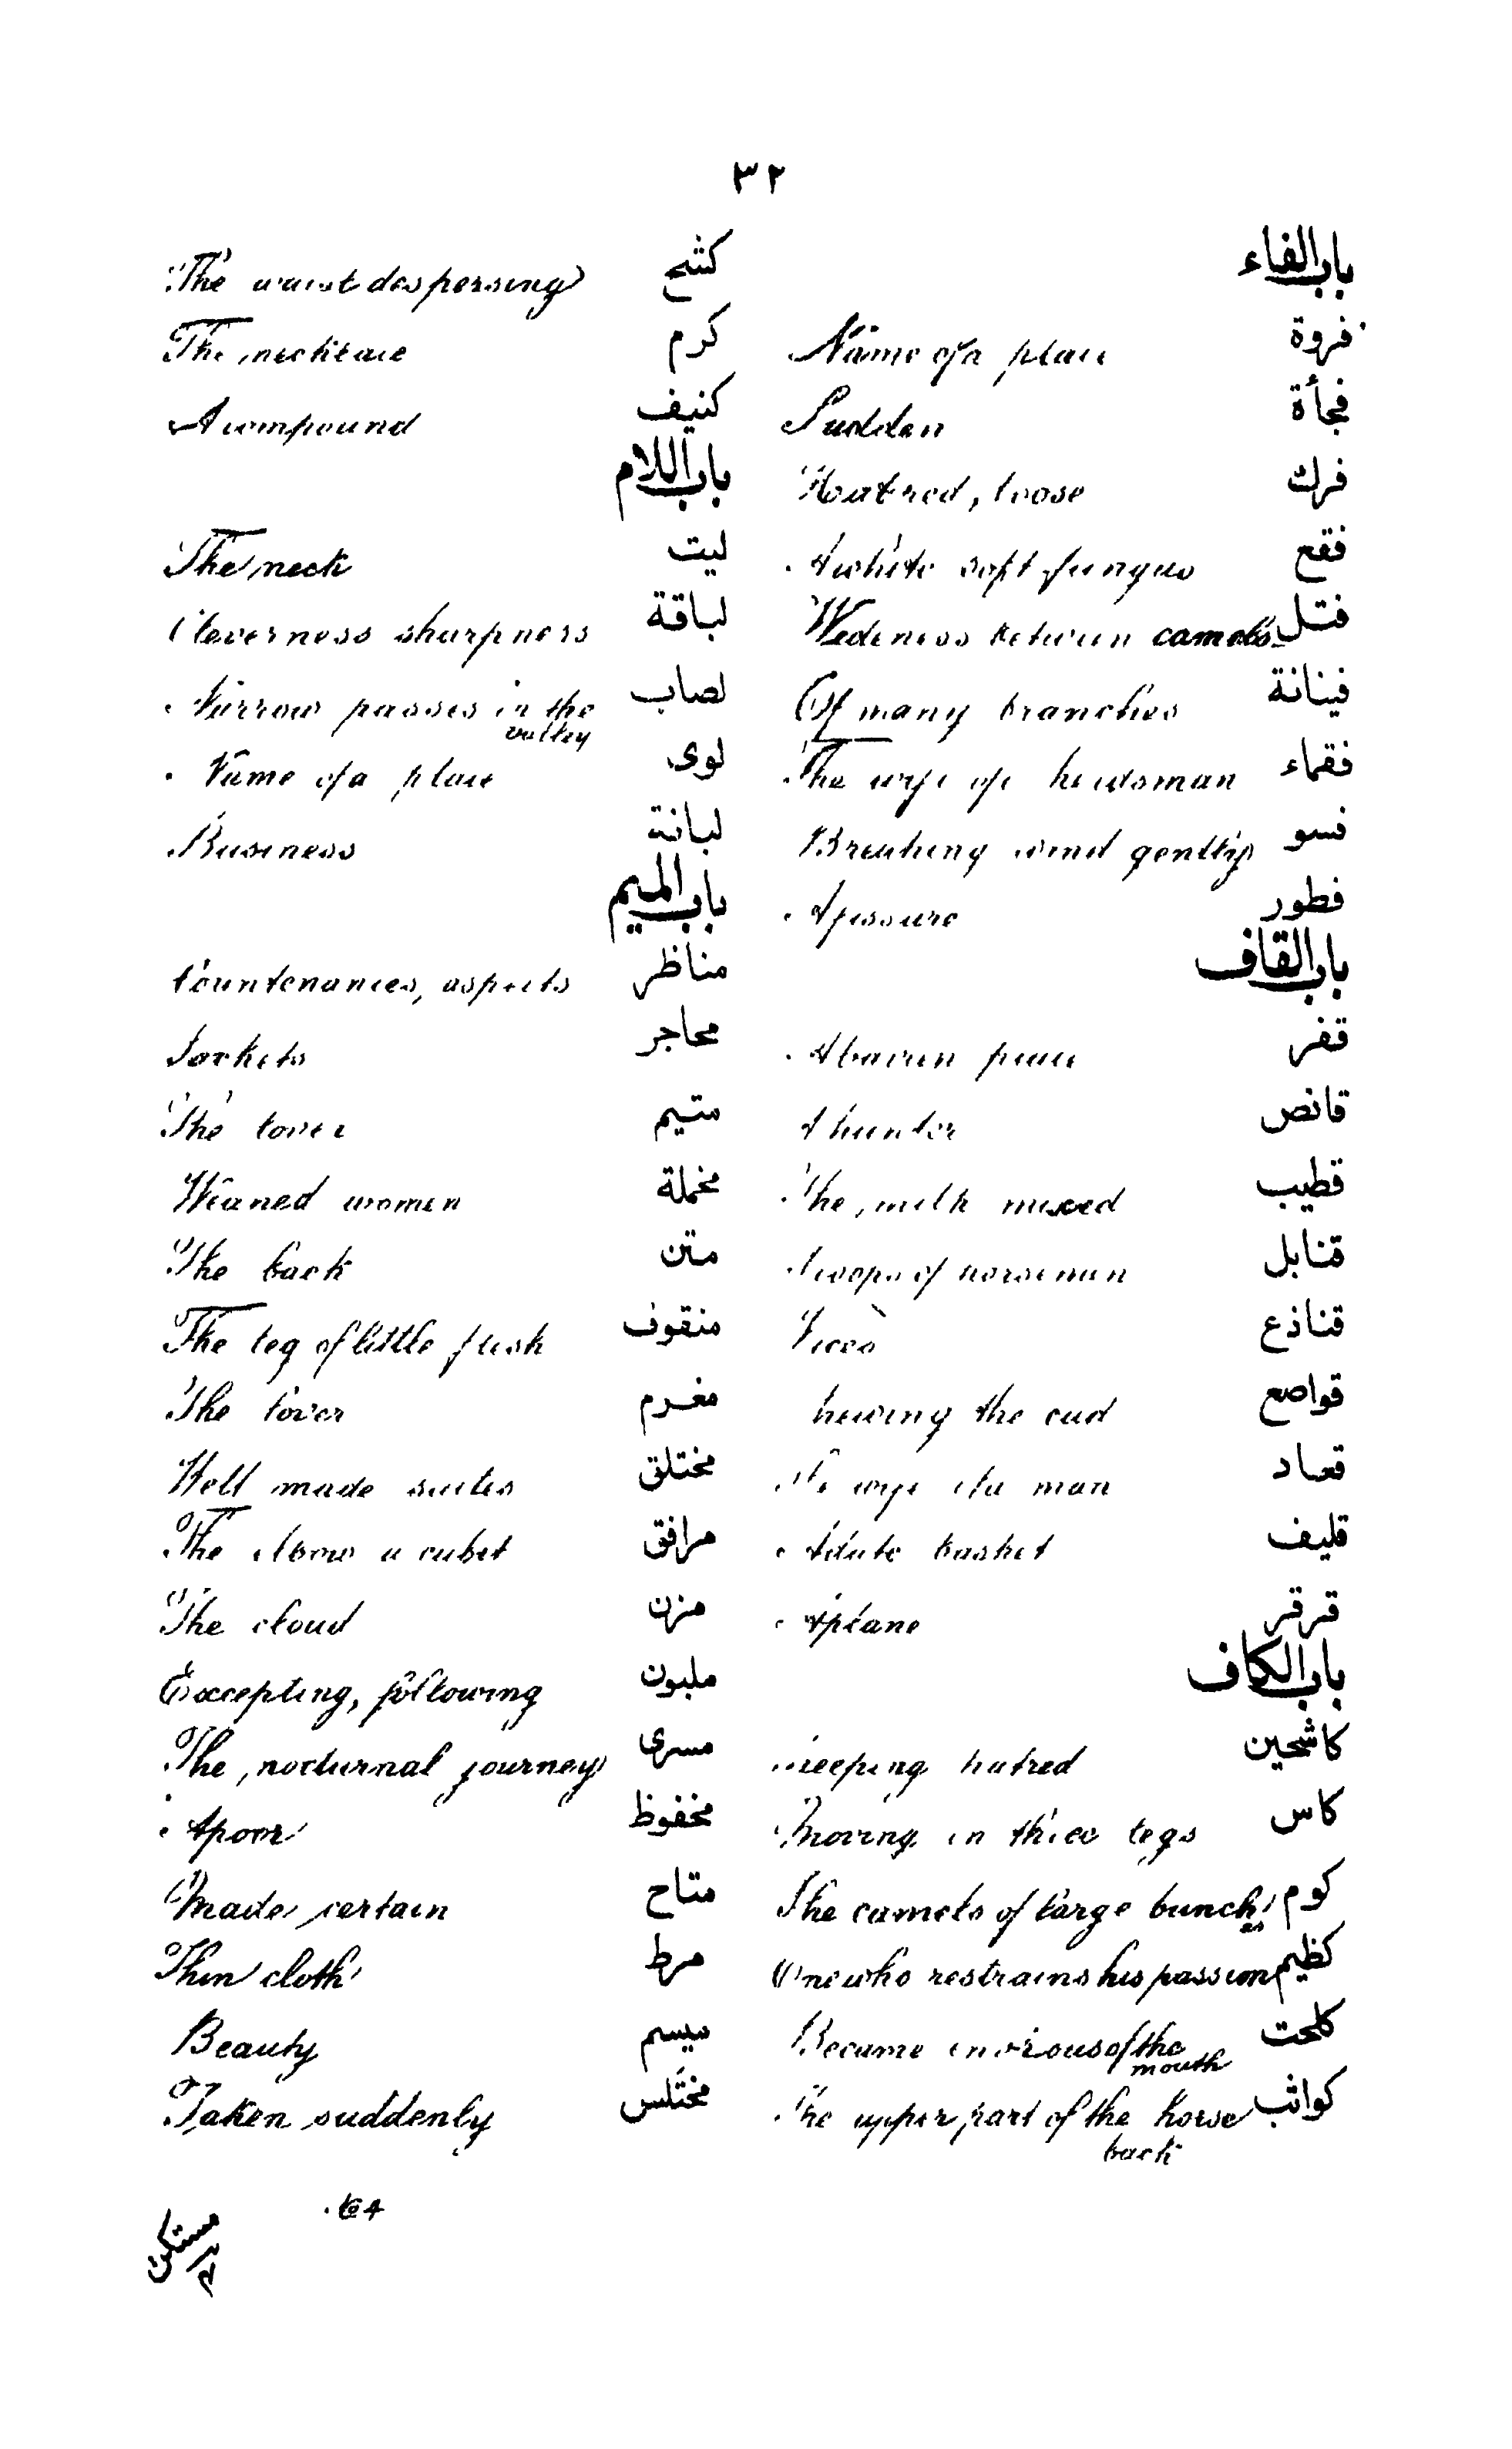 ٣٢
باب الفاء
فروة Name of a place
فجأة Sudden
فرك Hatred, loose
فقع A white soft fungus
فتل Wideness between camels
فينانة Of many branches
فقماء The wife of headsman
فسو Breathing wind gently
فطور A fissure
باب القاف
قفر A barren place
قانص A hunter
قطيب The milk mixed
قنابل Troops of horseman
قناذع Vices
قواصع hewing the cud
قعاد wife of a man
قليف A date basket
قرقر A plane
باب الكاف
كاشحين Keeping hatred
كاس Moving in three legs
كوم The camels of large bunches
كظيم One who restrains his passion
كلحت Became of the mouth
كواثب The upper part of the horse
back
كشح The waist dispersing
كرم The necklace
كنيف A compound
باب اللام
ليت The neck
لباقة Cleverness sharpness
لصاب Narrow passes in the
valley
لوى Name of a place
لبانة Business
باب الميم
مناظر Countenances, aspects
محاجر Sockets
متيم The lover
مخملة Weaned women
متن The back
منقوف The leg of little flesh
مغرم The lover
مختلق Well made suites
مرافق The elbow a cubit
مزن The cloud
ملبون Excepting, following
مسرى The nocturnal journey
مخفوظ A poor
متاح Made certain
مرط Thin cloth
ميسم Beauty
مختلس Taken suddenly
مستكن